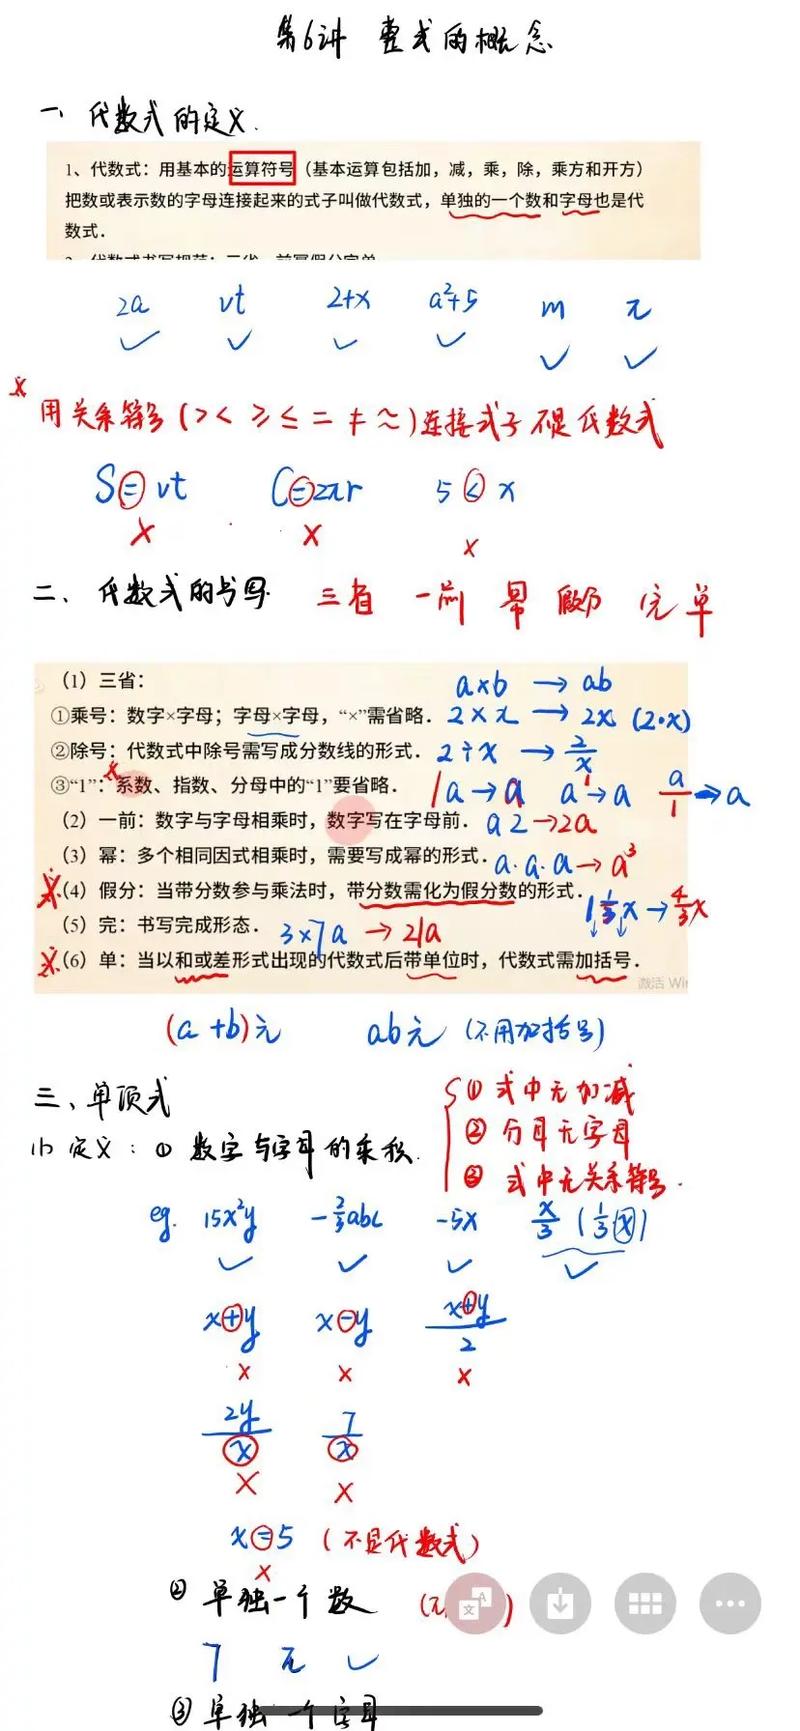 第6讲 整式的概念
一、代数式的定义.
1、代数式：用基本的运算符号（基本运算包括加，减，乘，除，乘方和开方）
把数或表示数的字母连接起来的式子叫做代数式，单独的一个数和字母也是代
数式.
2a vt 2+x a²+5 m π
✓ ✓ ✓ ✓ ✓ ✓
用关系符号(> < ≥ ≤ = ≠ ≈)连接式子不是代数式
S=vt C=2πr 5<x
× × ×
二、代数式的书写. 三省 一前 幂 假分 完 单
（1）三省： a×b → ab
①乘号：数字×字母；字母×字母，“×”需省略. 2×x → 2x (2·x)
②除号：代数式中除号需写成分数线的形式. 2÷x → 2/x
③“1”：系数、指数、分母中的“1”要省略. 1a→a a¹→a a/1→a
（2）一前：数字与字母相乘时，数字写在字母前. a2→2a
（3）幂：多个相同因式相乘时，需要写成幂的形式. a·a·a→a³
（4）假分：当带分数参与乘法时，带分数需化为假分数的形式. 1 1/3x→4/3x
（5）完：书写完成形态. 3×7a → 21a
（6）单：当以和或差形式出现的代数式后带单位时，代数式需加括号.
激活 Win
(a+b)元 ab元 (不用加括号)
三、单项式
①式中无加减
②分母无字母
③式中无关系符号.
(1) 定义：① 数字与字母的乘积.
eg. 15x²y -2/3abc -5x x/3 (1/3x)
✓ ✓ ✓ ✓
x+y x-y x+y/2
× × ×
2y/x 7/x
× ×
x=5 (不是代数式)
×
② 单独一个数 (π )
7 π ✓
③ 单独一个字母